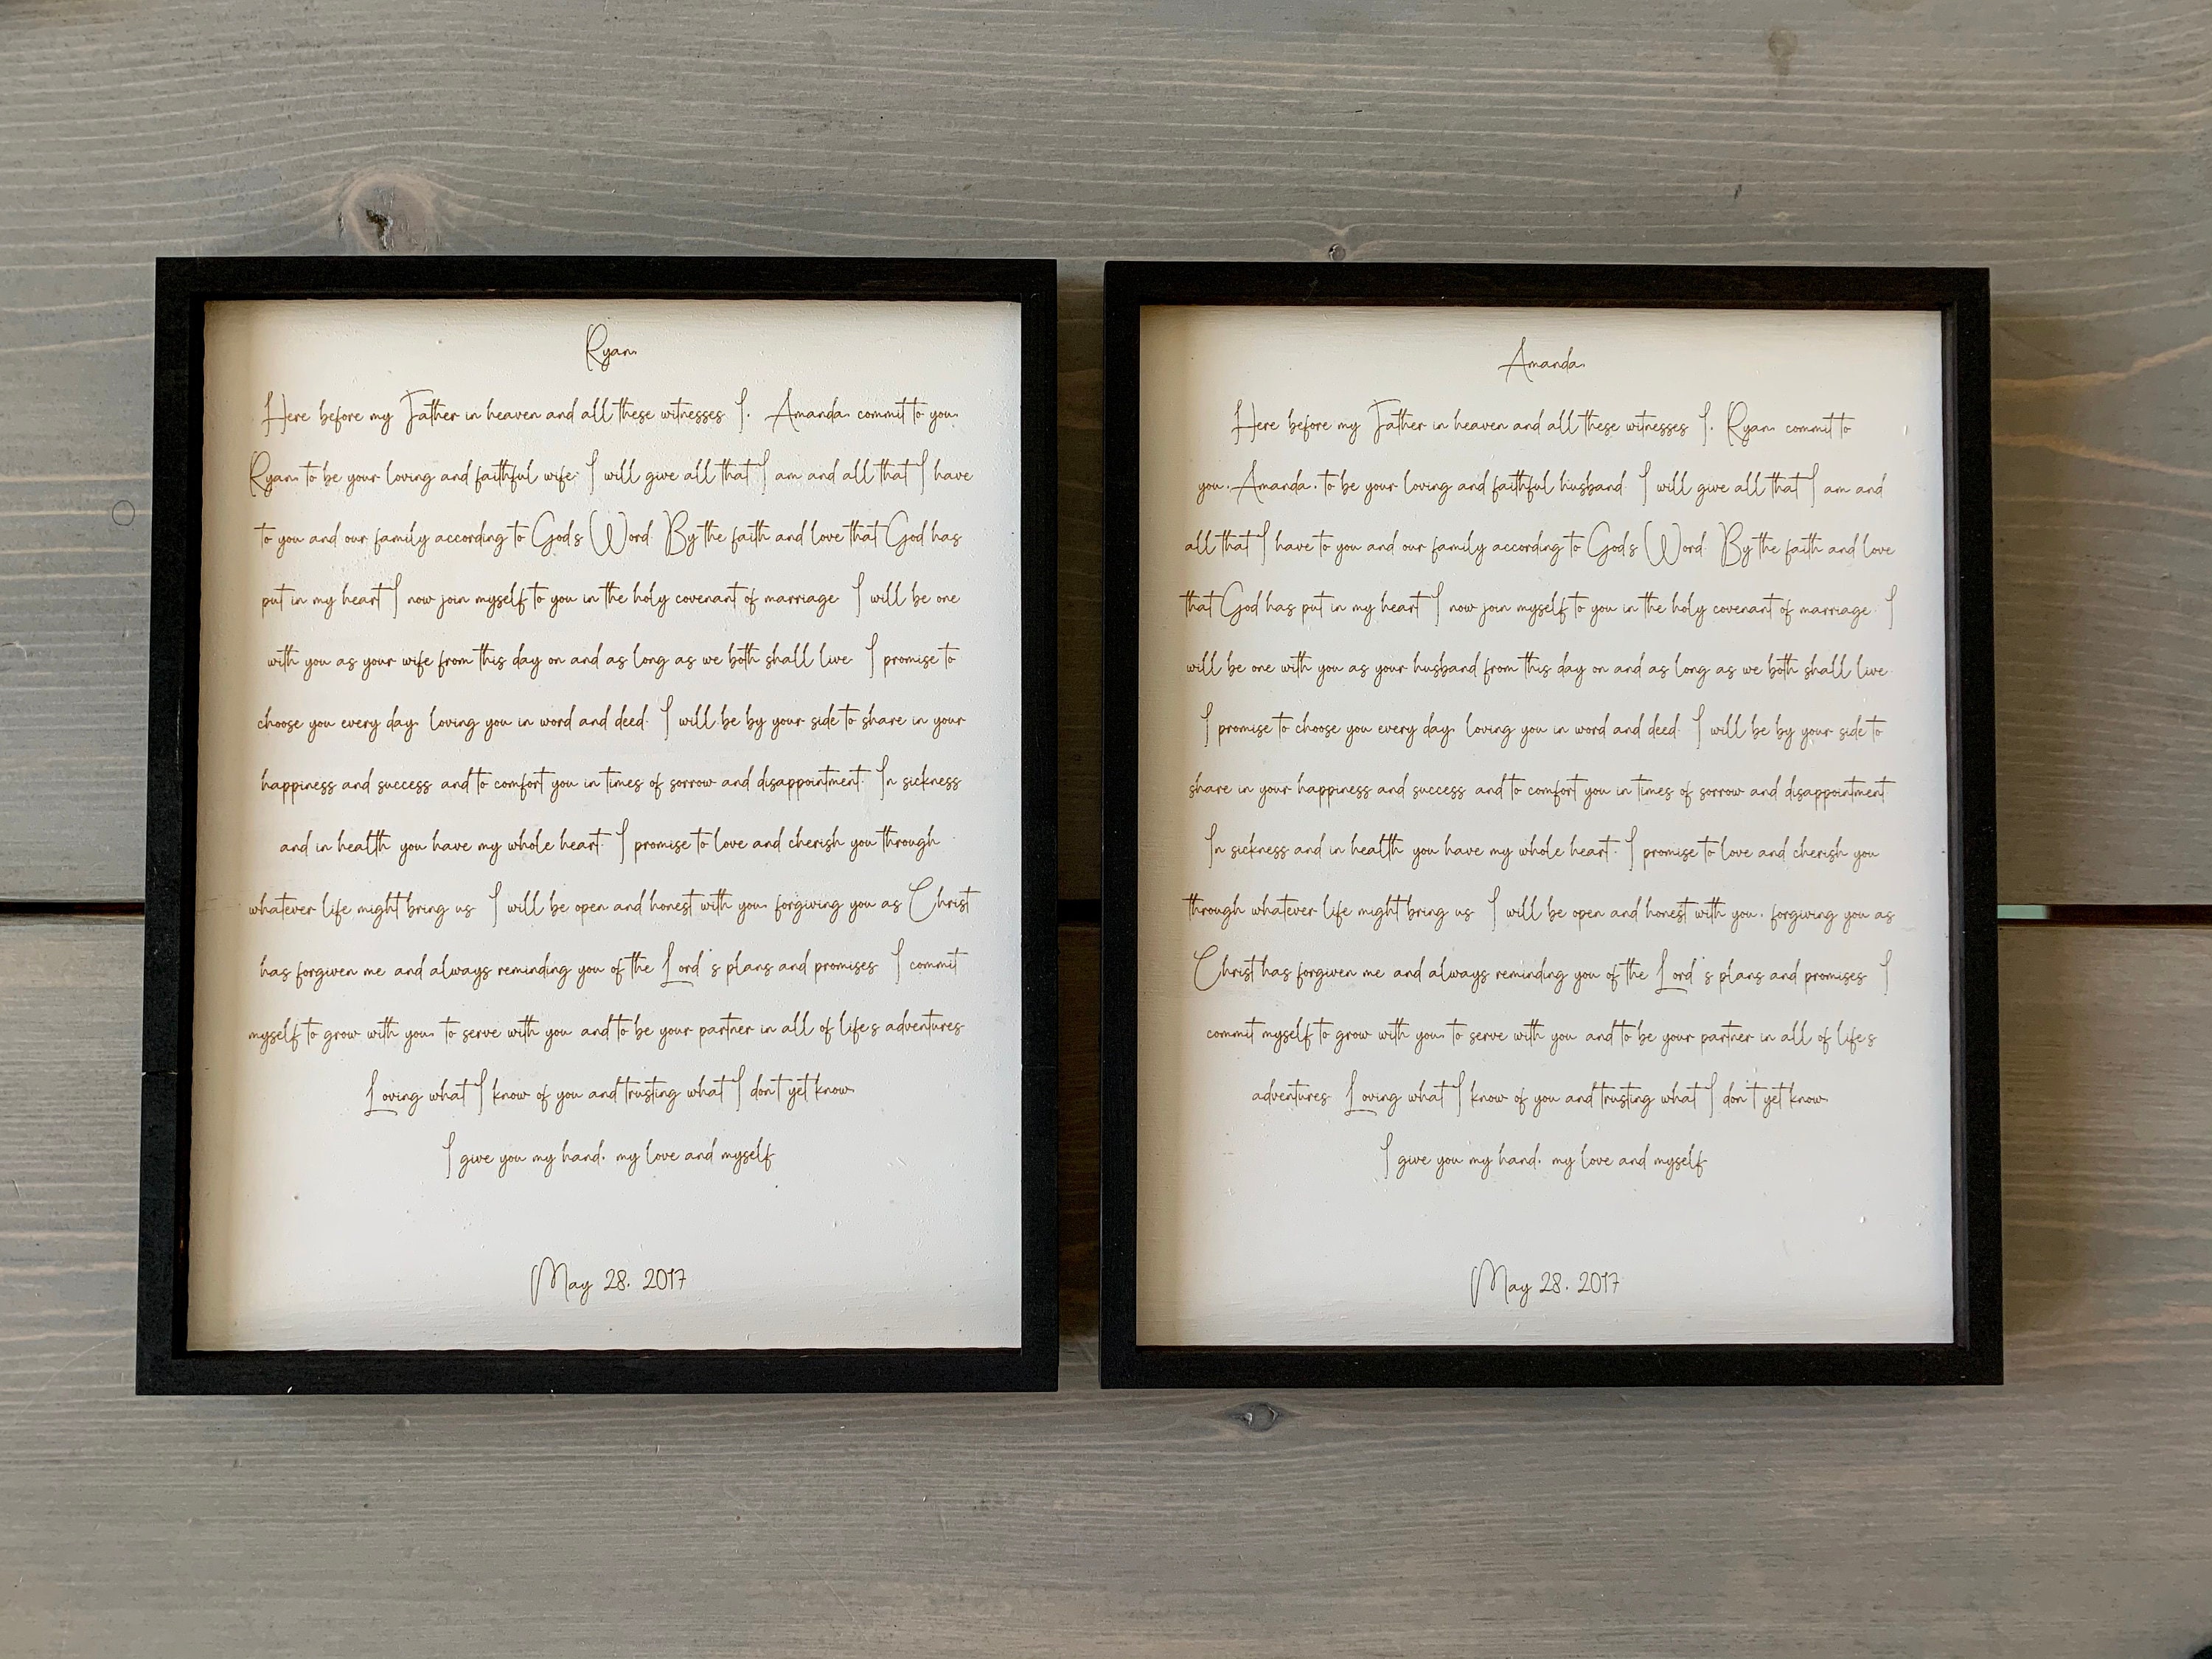 Ryan,
Here before my Father in heaven and all these witnesses I, Amanda, commit to you,
Ryan, to be your loving and faithful wife. I will give all that I am and all that I have
to you and our family according to God's Word. By the faith and love that God has
put in my heart I now join myself to you in the holy covenant of marriage. I will be one
with you as your wife from this day on and as long as we both shall live. I promise to
choose you every day, loving you in word and deed. I will be by your side to share in your
happiness and success and to comfort you in times of sorrow and disappointment. In sickness
and in health you have my whole heart. I promise to love and cherish you through
whatever life might bring us. I will be open and honest with you, forgiving you as Christ
has forgiven me and always reminding you of the Lord's plans and promises. I commit
myself to grow with you, to serve with you and to be your partner in all of life's adventures.
Loving what I know of you and trusting what I don't yet know,
I give you my hand, my love and myself.
May 28, 2017
Amanda,
Here before my Father in heaven and all these witnesses I, Ryan, commit to
you, Amanda, to be your loving and faithful husband. I will give all that I am and
all that I have to you and our family according to God's Word. By the faith and love
that God has put in my heart I now join myself to you in the holy covenant of marriage. I
will be one with you as your husband from this day on and as long as we both shall live.
I promise to choose you every day, loving you in word and deed. I will be by your side to
share in your happiness and success and to comfort you in times of sorrow and disappointment.
In sickness and in health you have my whole heart. I promise to love and cherish you
through whatever life might bring us. I will be open and honest with you, forgiving you as
Christ has forgiven me and always reminding you of the Lord's plans and promises. I
commit myself to grow with you, to serve with you and to be your partner in all of life's
adventures. Loving what I know of you and trusting what I don't yet know,
I give you my hand, my love and myself.
May 28, 2017